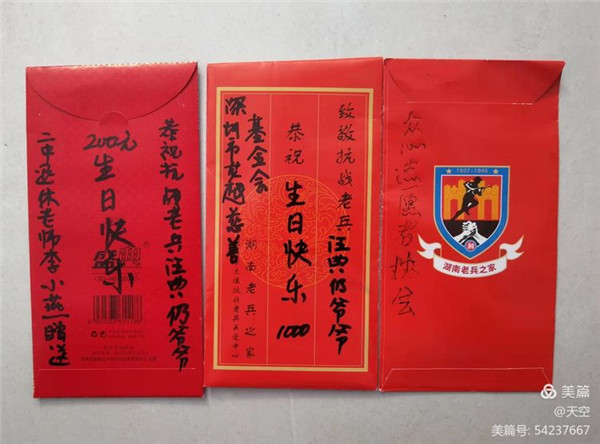 恭祝抗战老兵汪典仍爷爷
生日快乐
200元
二中退休老师李小燕赠送
致敬抗战老兵汪典仍爷爷
恭祝
生日快乐
1000
湖南老兵之家
基金会
深圳市龙越慈善
众心志愿者协会
1937-1945
湖南老兵之家
美篇
@天空
美篇号: 54237667